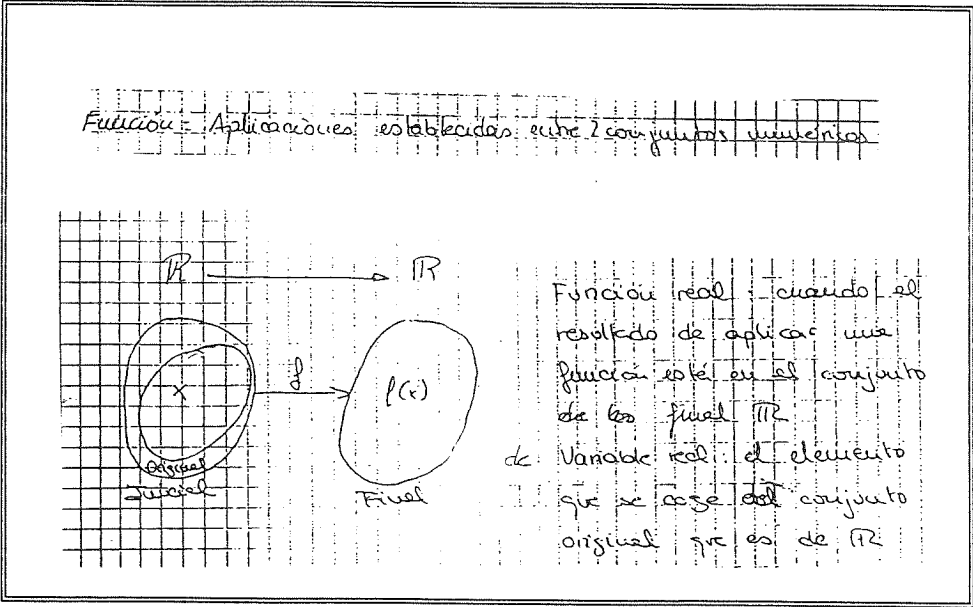 Función = Aplicaciones establecidas entre 2 conjuntos numéricos
R → R
f
x
f(x)
Original
Inicial
Final
Función real : cuando el
resultado de aplicar una
función está en el conjunto
de los final R
de Variable real : el elemento
que se coge del conjunto
original que es de R